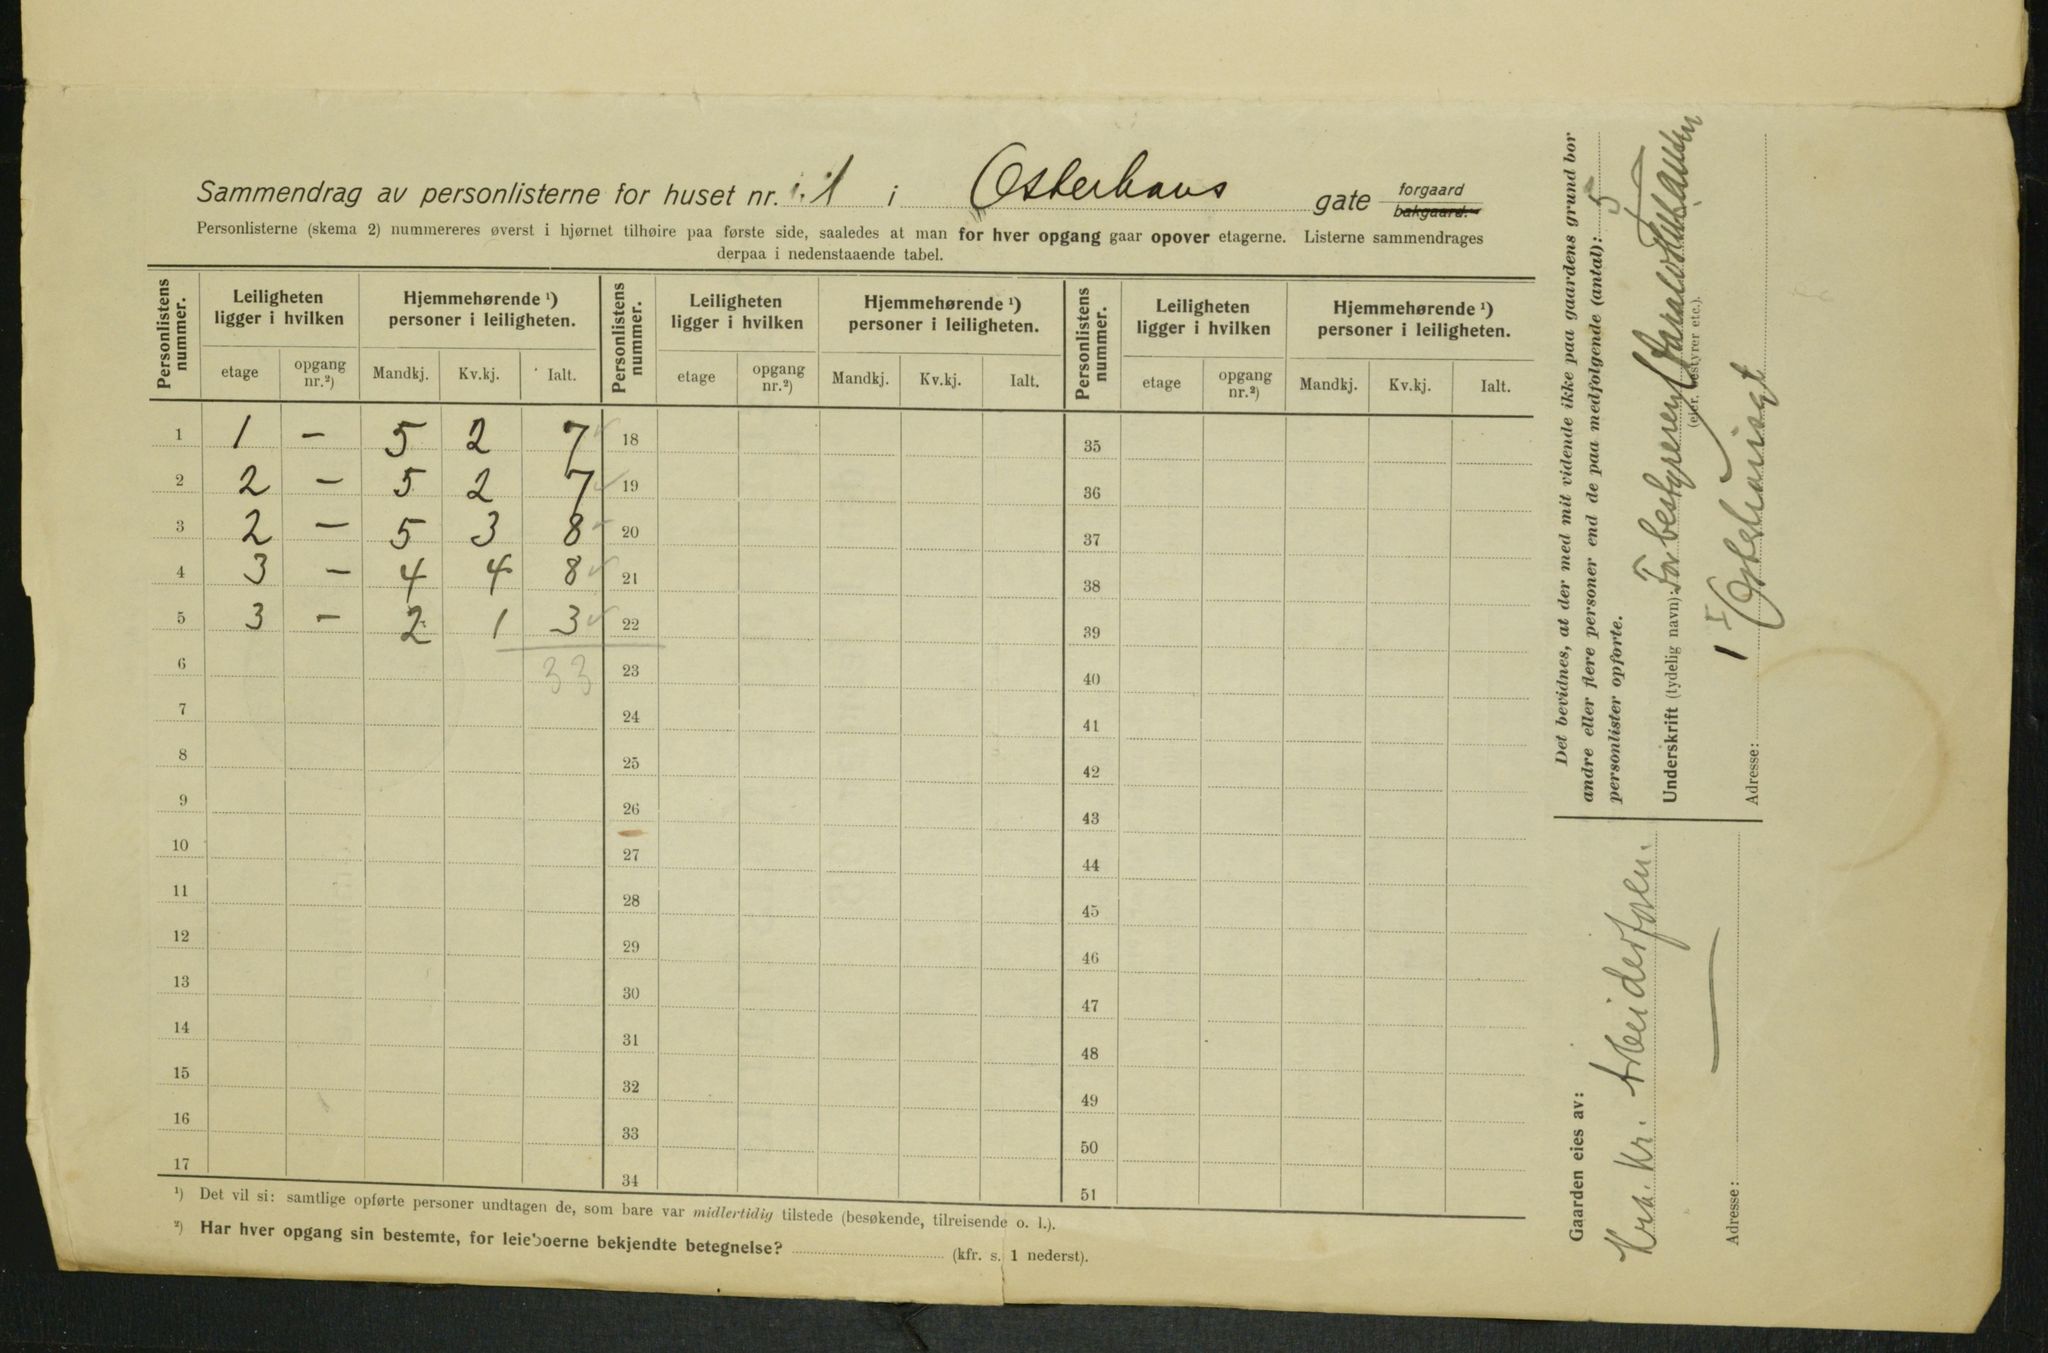 Sammendrag av personlisterne for huset nr. 1 i Osterhaus gate forgaard bakgaard.
Personlisterne (skema 2) nummereres øverst i hjørnet tilhøire paa første side, saaledes at man for hver opgang gaar opover etagerne. Listerne sammendrages
derpaa i nedenstaaende tabel.
Personlistens nummer. Leiligheten ligger i hvilken Hjemmehørende ¹) personer i leiligheten. Personlistens nummer. Leiligheten ligger i hvilken Hjemmehørende ¹) personer i leiligheten. Personlistens nummer. Leiligheten ligger i hvilken Hjemmehørende ¹) personer i leiligheten.
etage opgang nr.²) Mandkj. Kv.kj. Ialt. etage opgang nr.²) Mandkj. Kv.kj. Ialt. etage opgang nr.²) Mandkj. Kv.kj. Ialt.
1 1 – 5 2 7 18 35
2 2 – 5 2 7 19 36
3 2 – 5 3 8 20 37
4 3 – 4 4 8 21 38
5 3 – 2 1 3 22 39
6 33 23 40
7 24 41
8 25 42
9 26 43
10 27 44
11 28 45
12 29 46
13 30 47
14 31 48
15 32 49
16 33 50
17 34 51
¹) Det vil si: samtlige opførte personer undtagen de, som bare var midlertidig tilstede (besøkende, tilreisende o. l.).
²) Har hver opgang sin bestemte, for leieboerne bekjendte betegnelse? (kfr. s. 1 nederst).
Det bevidnes, at der med mit vidende ikke paa gaardens grund bor
andre eller flere personer end de paa medfølgende (antal): 5
personlister opførte.
Underskrift (tydelig navn): For bestyreren
(eier, bestyrer etc.).
Adresse: 1
Gaarden eies av:
Kra. Kr. Arbeiderforen.
Adresse: —